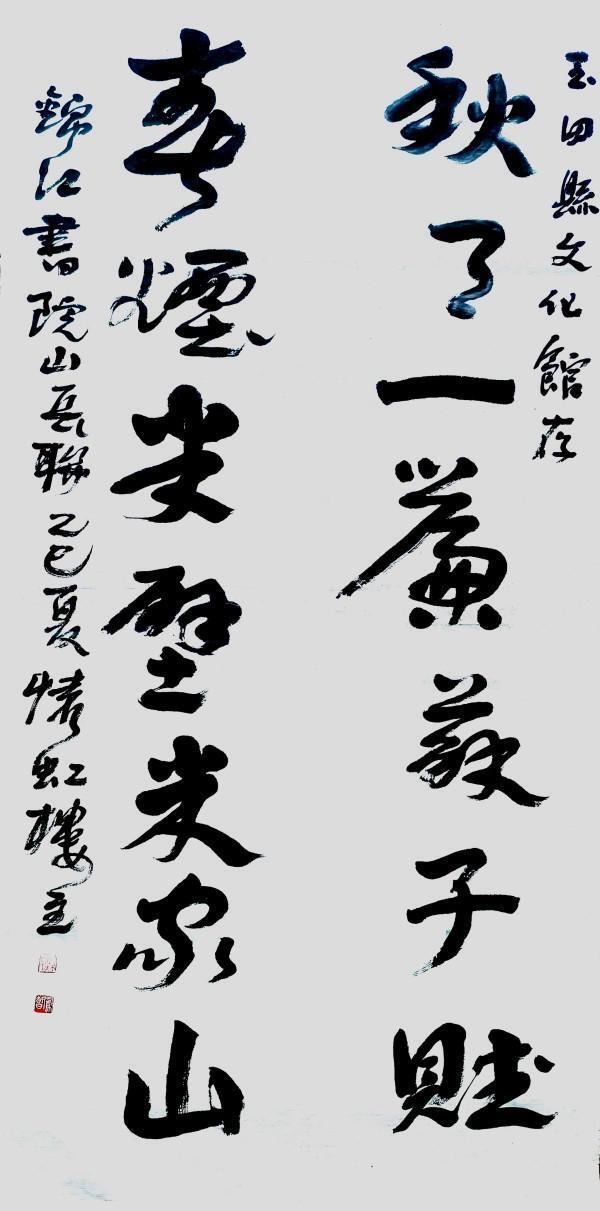 玉田縣文化館存
秋月一簾蘇子賦
春煙半壁米家山
錦江書院山長聯乙巳夏虹樓主